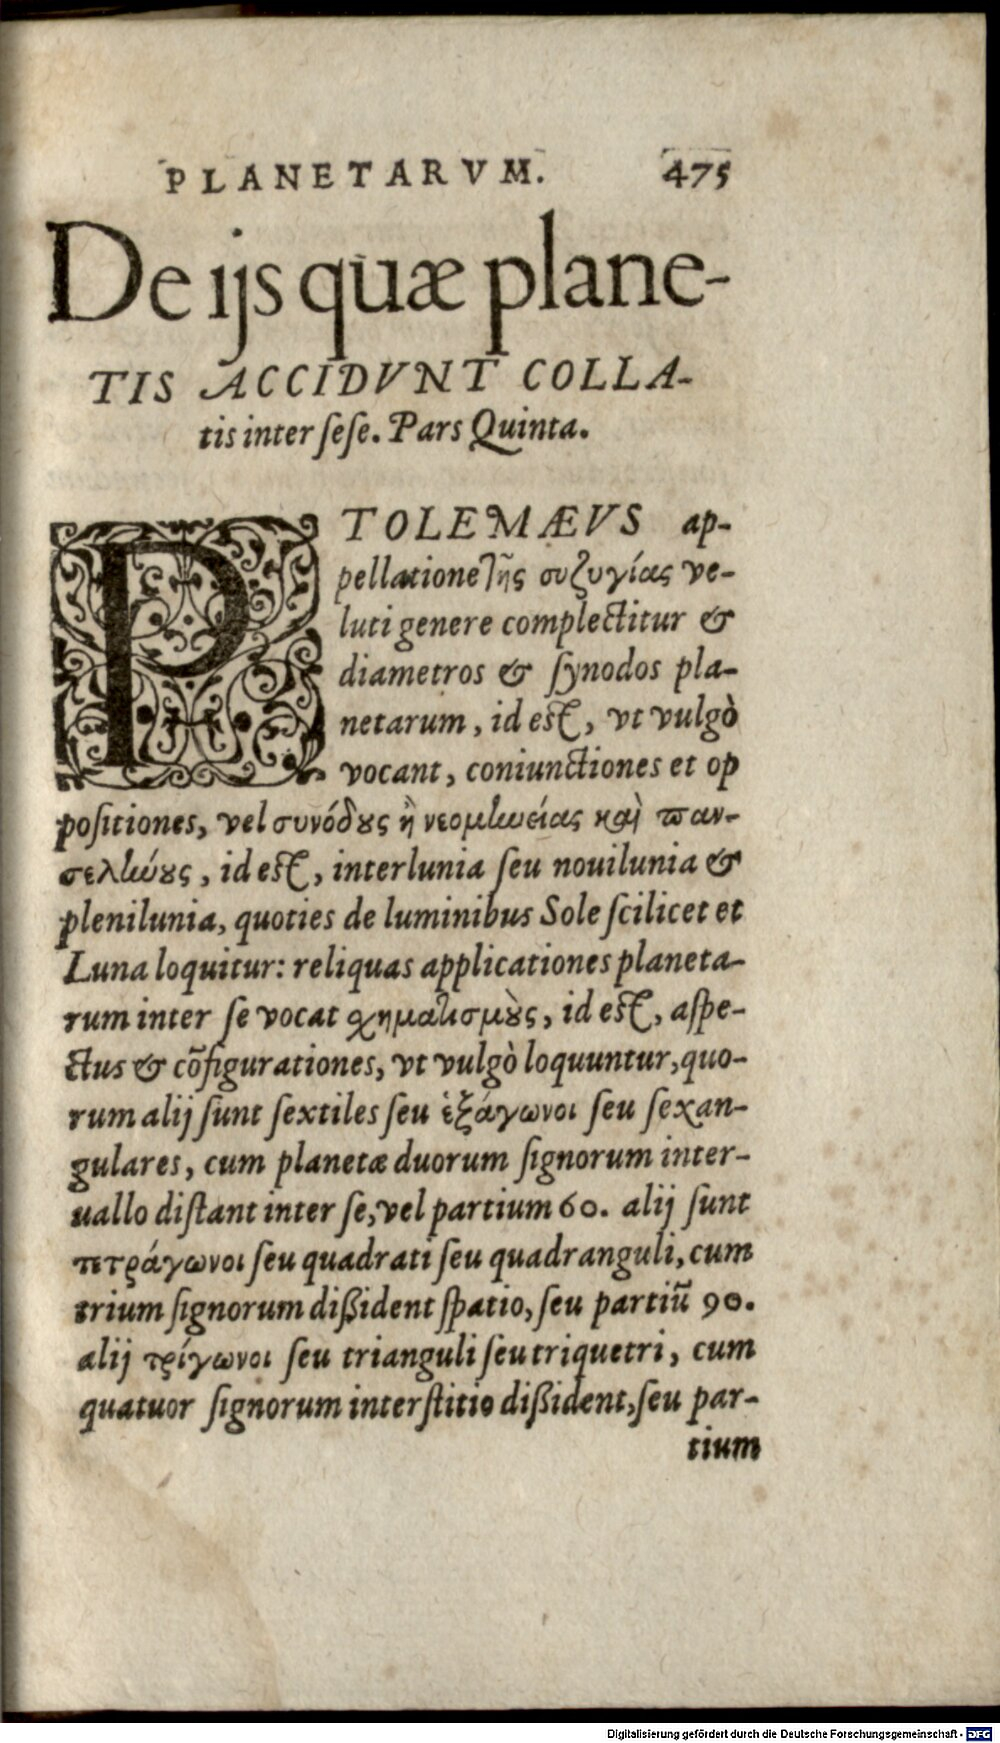 PLANETARVM. 475
De ijs quæ plane-
TIS ACCIDVNT COLLA-
tis inter ſeſe. Pars Quinta.
PTOLEMÆVS ap-
pellatione τῆς συζυγίας ve-
luti genere complectitur &
diametros & ſynodos pla-
netarum, id eſt, vt vulgò
vocant, coniunctiones et op
poſitiones, vel συνόδους ἢ νεομηνίας καὶ παν-
σελήνους, id eſt, interlunia ſeu nouilunia &
plenilunia, quoties de luminibus Sole ſcilicet et
Luna loquitur: reliquas applicationes planeta-
rum inter ſe vocat σχηματισμοὺς, id eſt, aſpe-
ctus & cōfigurationes, vt vulgò loquuntur, quo-
rum alij ſunt ſextiles ſeu ἑξάγωνοι ſeu ſexan-
gulares, cum planetæ duorum ſignorum inter-
uallo diſtant inter ſe, vel partium 60. alij ſunt
τετράγωνοι ſeu quadrati ſeu quadranguli, cum
trium ſignorum dißident ſpatio, ſeu partiū 90.
alij τρίγωνοι ſeu trianguli ſeu triquetri, cum
quatuor ſignorum interſtitio dißident, ſeu par-
tium
Digitalisierung gefördert durch die Deutsche Forschungsgemeinschaft - DFG